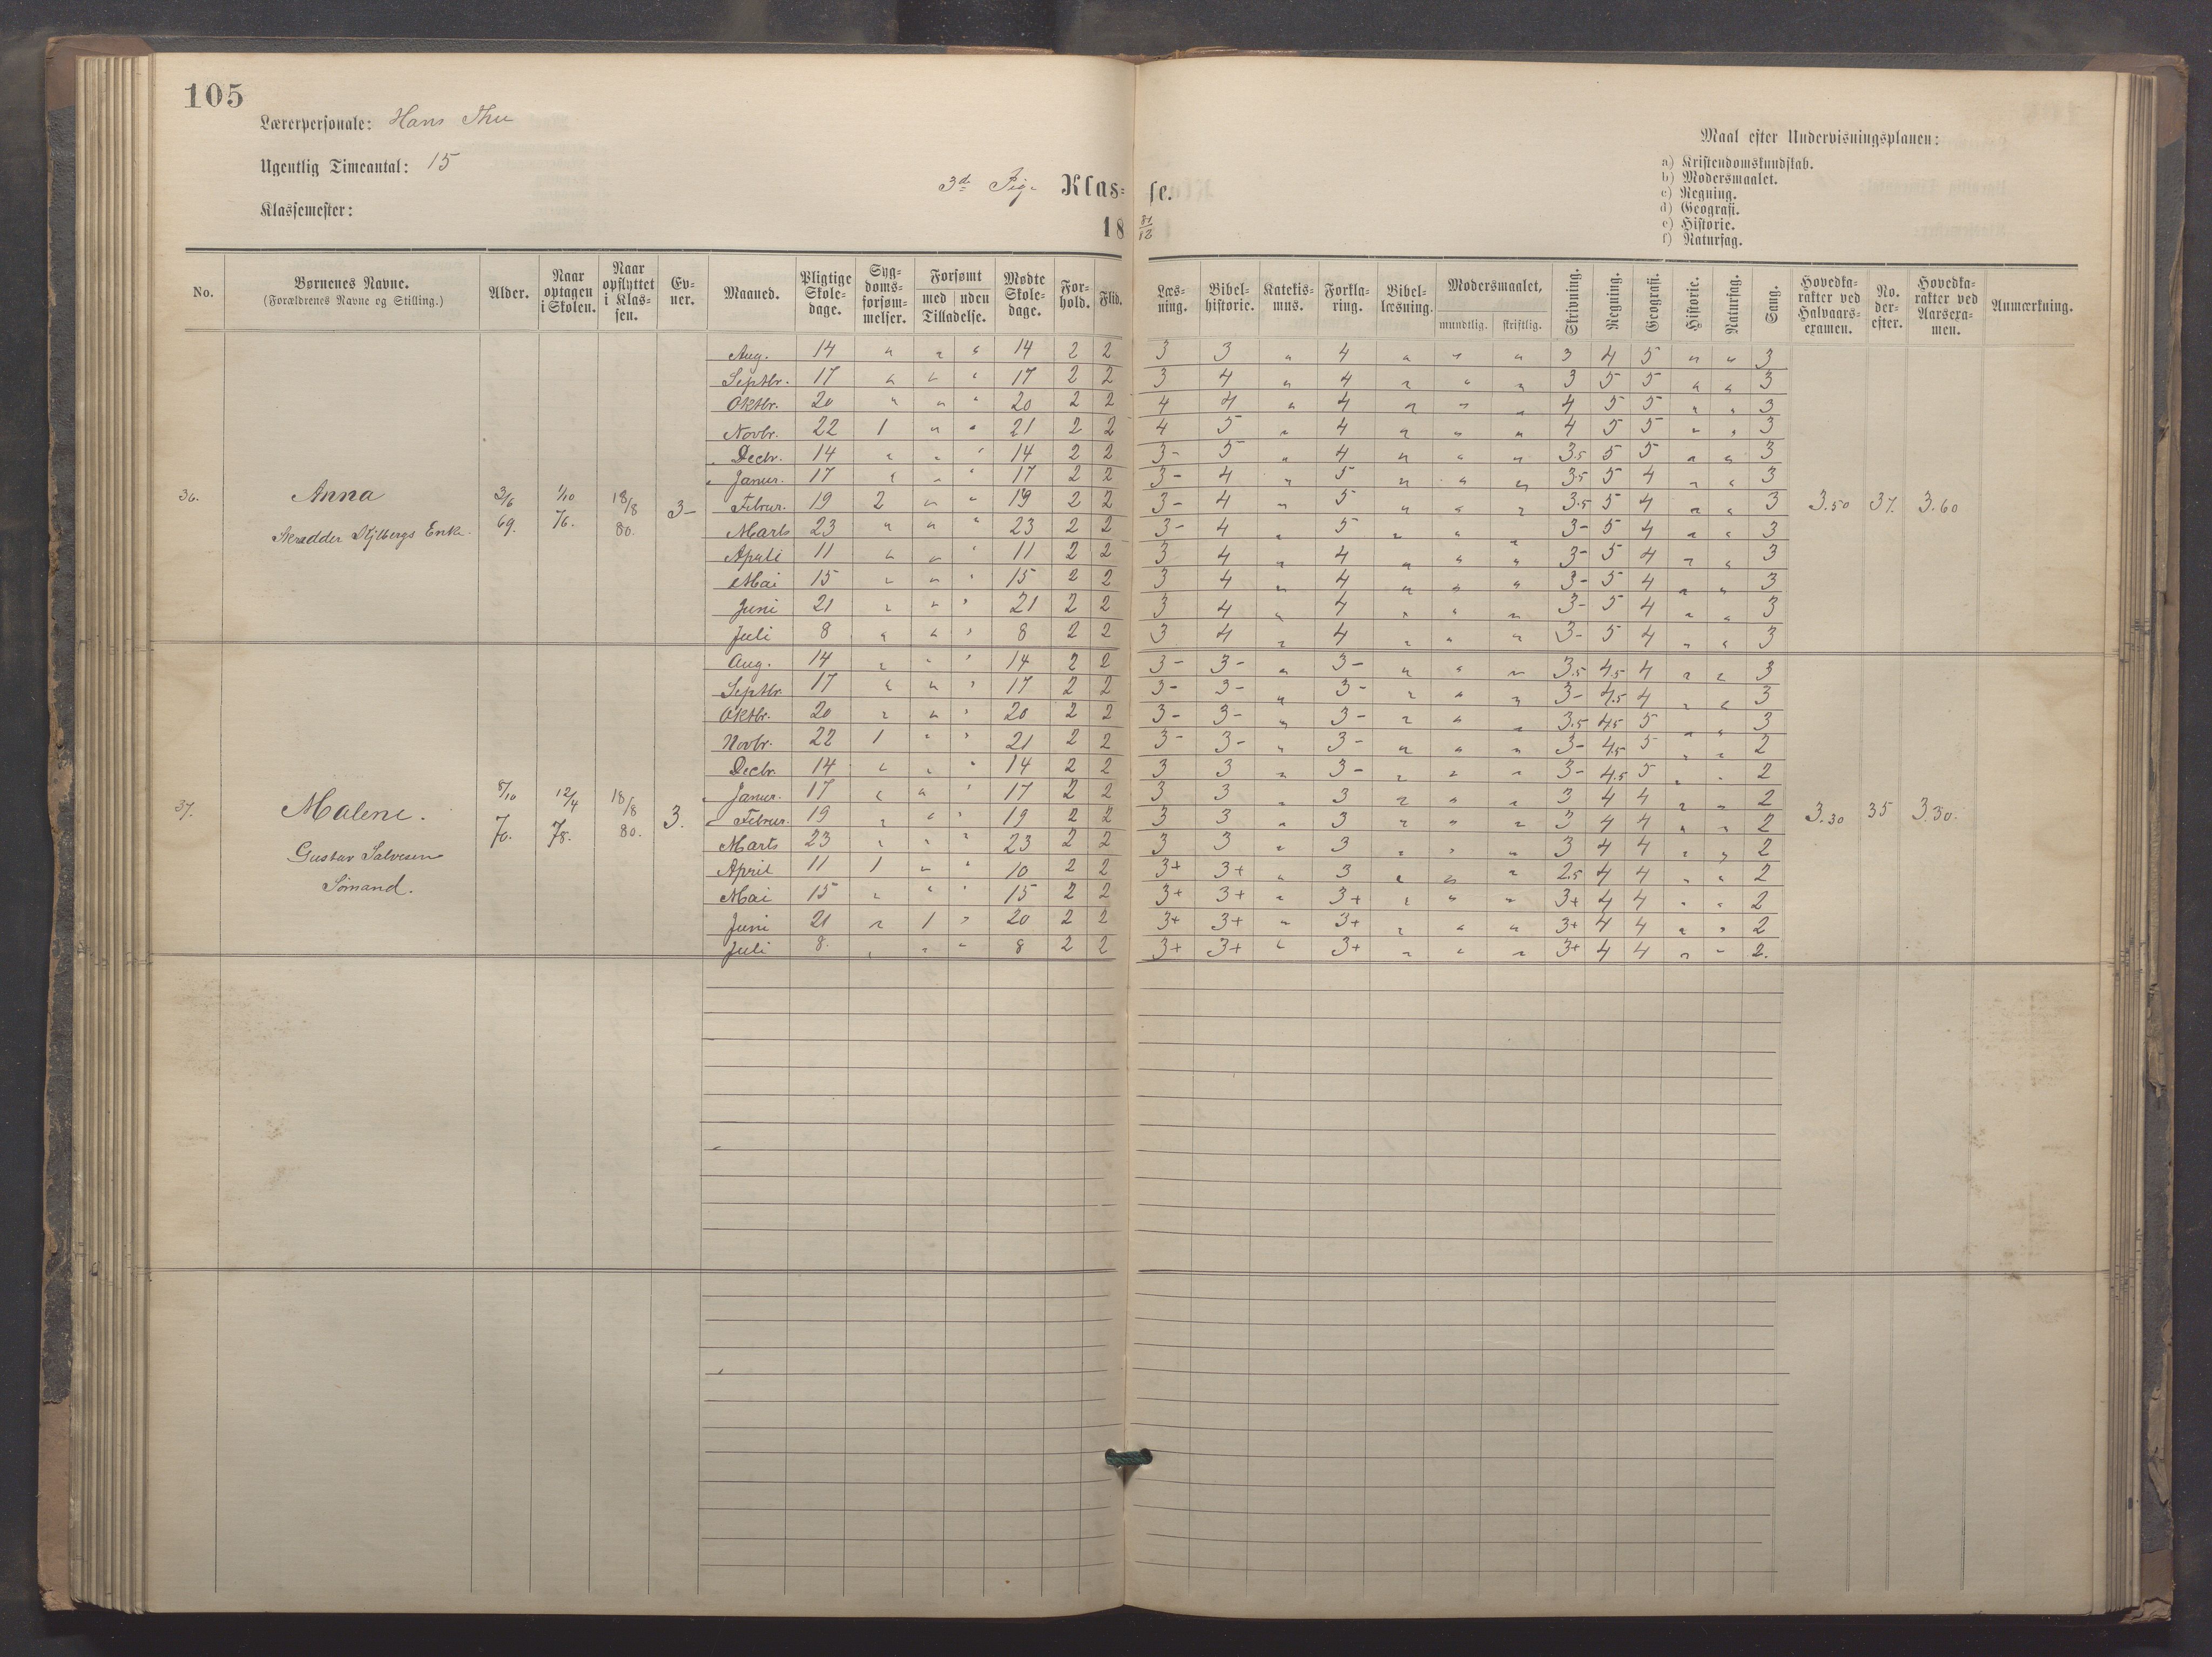 105
Lærerpersonale: Hans Thu
Ugentlig Timeantal: 15
Klassemester:
3d Pige Klasse.
18 81/82
Maal efter Undervisningsplanen:
a) Kristendomskundskab.
b) Modersmaalet.
c) Regning.
d) Geografi.
e) Historie.
f) Naturfag.
No. Børnenes Navne. (Forældrenes Navne og Stilling.) Alder. Naar optagen i Skolen. Naar opflyttet i Klassen. Evner. Maaned. Pligtige Skoledage. Sygdomsforsømmelser. Forsømt med uden Tilladelse. Mødte Skoledage. Forhold. Flid. Læsning. Bibelhistorie. Katekismus. Forklaring. Bibellæsning. Modersmaalet, mundtlig. skriftlig. Skrivning. Regning. Geografi. Historie. Naturfag. Sang. Hovedkarakter ved Halvaarsexamen. No. derefter. Hovedkarakter ved Aarsexamen. Anmærkning.
36. Anna 3/6 69. 1/10 76. 18/8 80. 3- 3.50 37. 3.60
Skrædder Kjlbergs Enke
Aug. 14 " " " 14 2 2 3 3 " 4 " " " 3 4 5 " " 3
Septbr. 17 " " " 17 2 2 3 4 " 4 " " " 3 5 5 " " 3
Oktbr. 20 " " " 20 2 2 4 4 " 4 " " " 4 5 5 " " 3
Novbr. 22 1 " " 21 2 2 4 5 " 4 " " " 4 5 5 " " 3
Decbr. 14 " " " 14 2 2 3- 5 " 4 " " " 3.5 5 5 " " 3
Janur. 17 " " " 17 2 2 3- 4 " 5 " " " 3.5 5 4 " " 3
Februr. 19 2 " " 19 2 2 3- 4 " 5 " " " 3.5 5 4 " " 3
Marts 23 " " " 23 2 2 3- 4 " 5 " " " 3- 5 4 " " 3
April 11 " " " 11 2 2 3 4 " 4 " " " 3- 5 4 " " 3
Mai 15 " " " 15 2 2 3 4 " 4 " " " 3- 5 4 " " 3
Juni 21 " " " 21 2 2 3 4 " 4 " " " 3- 5 4 " " 3
Juli 8 " " " 8 2 2 3 4 " 4 " " " 3- 5 4 " " 3
37. Malene. 8/10 70. 12/4 78. 18/8 80. 3. 3.30 35 3.30.
Gustav Salvesen
Sömand.
Aug. 14 " " " 14 2 2 3- 3- " 3- " " " 3.5 4.5 4 " " 3
Septbr 17 " " " 17 2 2 3- 3- " 3- " " " 3- 4.5 4 " " 3
Oktbr. 20 " " " 20 2 2 3- 3- " 3- " " " 3.5 4.5 5 " " 3
Novbr. 22 1 " " 21 2 2 3- 3- " 3- " " " 3- 4.5 5 " " 2
Decbr. 14 " " " 14 2 2 3 3 " 3- " " " 3- 4.5 5 " " 2
Janur. 17 " " " 17 2 2 3 3 " 3 " " " 3 4 4 " " 2
Februr. 19 " " " 19 2 2 3 3 " 3 " " " 3 4 4 " " 2
Marts 23 " " " 23 2 2 3 3 " 3 " " " 3 4 4 " " 2
April 11 1 " " 10 2 2 3+ 3+ " 3 " " " 2.5 4 4 " " 2
Mai 15 " " " 15 2 2 3+ 3+ " 3+ " " " 3+ 4 4 " " 2
Juni 21 " 1 " 20 2 2 3+ 3+ " 3+ " " " 3+ 4 4 " " 2
Juli 8 " " " 8 2 2 3+ 3+ " 3+ " " " 3+ 4 4 " " 2.